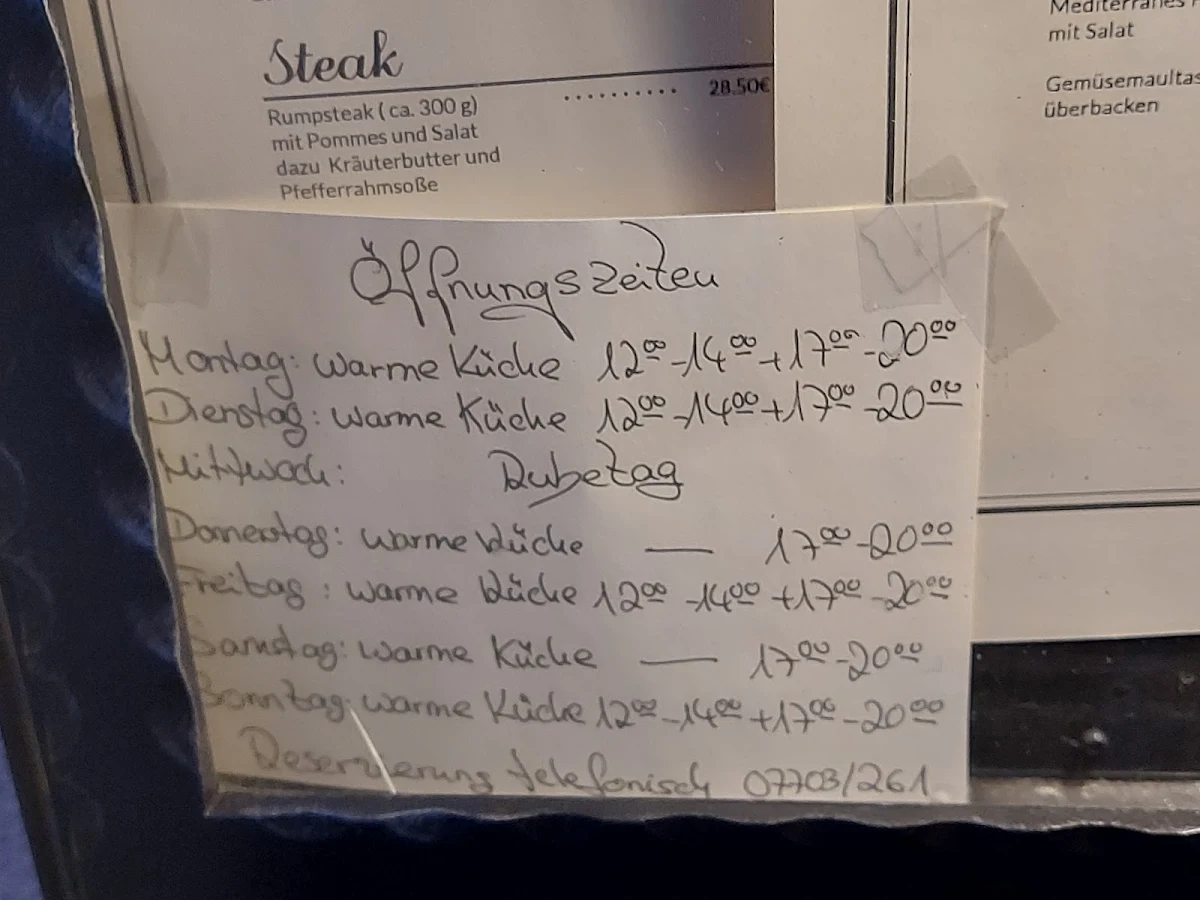 Steak
Rumpsteak ( ca. 300 g) .......... 28.50€
mit Pommes und Salat
dazu Kräuterbutter und
Pfefferrahmsoße
Mediterranes
mit Salat
Gemüsemaultas
überbacken
Öffnungszeiten
Montag: warme Küche 12⁰⁰-14⁰⁰+17⁰⁰-20⁰⁰
Dienstag: warme Küche 12⁰⁰-14⁰⁰+17⁰⁰-20⁰⁰
Mittwoch: Ruhetag
Donnerstag: warme Küche — 17⁰⁰-20⁰⁰
Freitag: warme Küche 12⁰⁰-14⁰⁰+17⁰⁰-20⁰⁰
Samstag: warme Küche — 17⁰⁰-20⁰⁰
Sonntag: warme Küche 12⁰⁰-14⁰⁰+17⁰⁰-20⁰⁰
Reservierung telefonisch 07703/261